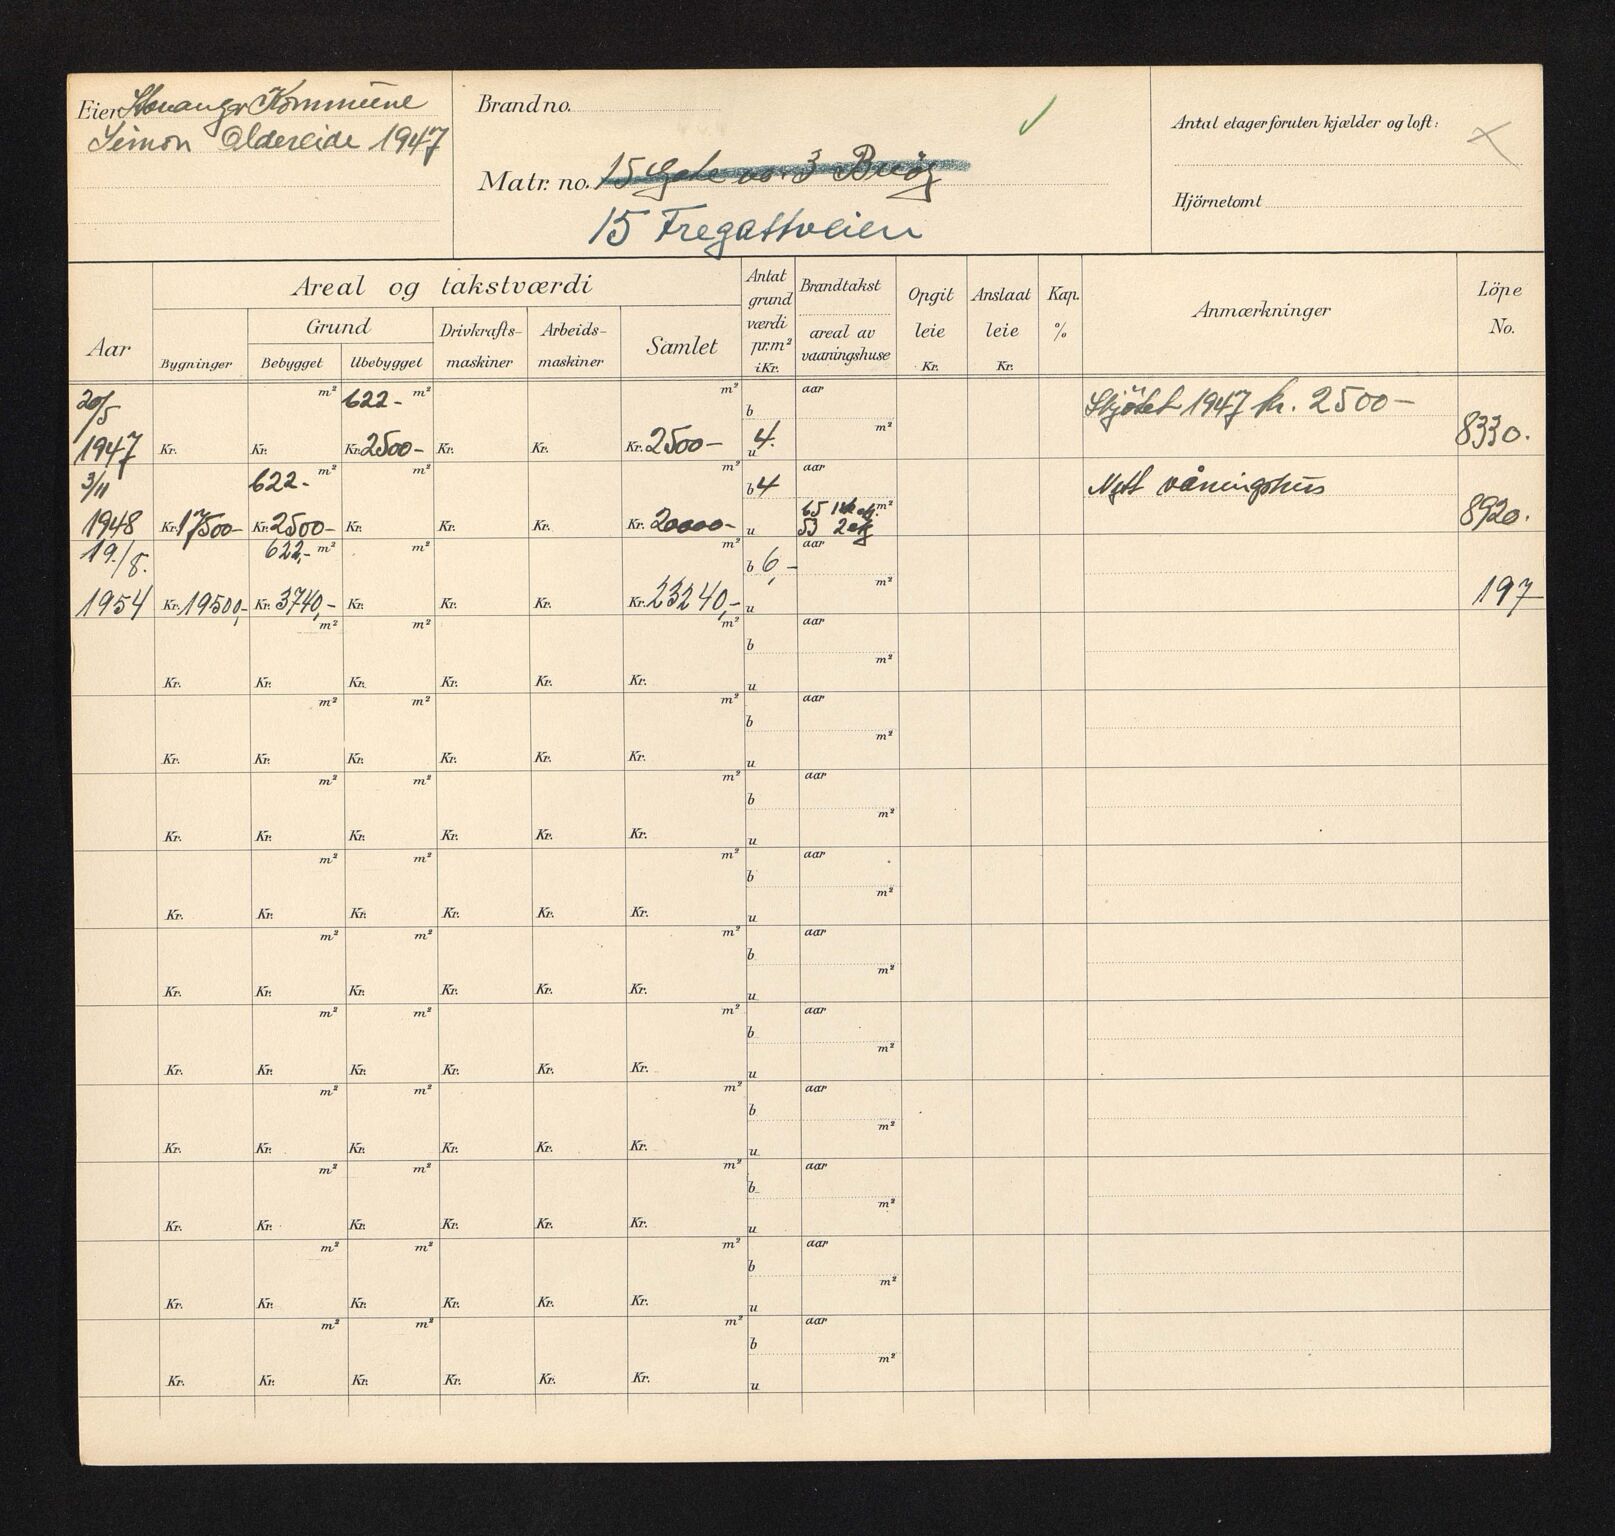 Eier Stavanger Kommune
Simon Aldereide 1947
Brandno.
Matr. no. 15 Gate no. 3 Buøy
15 Fregattveien
Antal etager foruten kjælder og loft:
Hjörnetomt
Aar
Areal og takstværdi
Bygninger
Grund
Bebygget
Ubebygget
Drivkrafts-
maskiner
Arbeids-
maskiner
Samlet
Antat
grund
værdi
pr.m²
i Kr.
Brandtakst
areal av
vaaningshuse
Opgit
leie
Kr.
Anslaat
leie
Kr.
Kap.
%
Anmærkninger
Löpe
No.
20/5 m² 622- m² m² b aar Skjötet 1947 kr. 2500-
1947 Kr. Kr. Kr. 2500- Kr. Kr. Kr. 2500- u 4. m² 8330.
3/11 622- m² m² m² b 4 aar Nytt våningshus
1948 Kr. 17500- Kr. 2500- Kr. Kr. Kr. Kr. 20000- u 65 1 etg. m² 8920.
53 2 etg
19./8. 622,- m² m² m² b 6,- aar
1954 Kr. 19500,- Kr. 3740,- Kr. Kr. Kr. Kr. 23240,- u m² 197
m² m² m² b aar
Kr. Kr. Kr. Kr. Kr. Kr. u m²
m² m² m² b aar
Kr. Kr. Kr. Kr. Kr. Kr. u m²
m² m² m² b aar
Kr. Kr. Kr. Kr. Kr. Kr. u m²
m² m² m² b aar
Kr. Kr. Kr. Kr. Kr. Kr. u m²
m² m² m² b aar
Kr. Kr. Kr. Kr. Kr. Kr. u m²
m² m² m² b aar
Kr. Kr. Kr. Kr. Kr. Kr. u m²
m² m² m² b aar
Kr. Kr. Kr. Kr. Kr. Kr. u m²
m² m² m² b aar
Kr. Kr. Kr. Kr. Kr. Kr. u m²
m² m² m² b aar
Kr. Kr. Kr. Kr. Kr. Kr. u m²
m² m² m² b aar
Kr. Kr. Kr. Kr. Kr. Kr. u m²